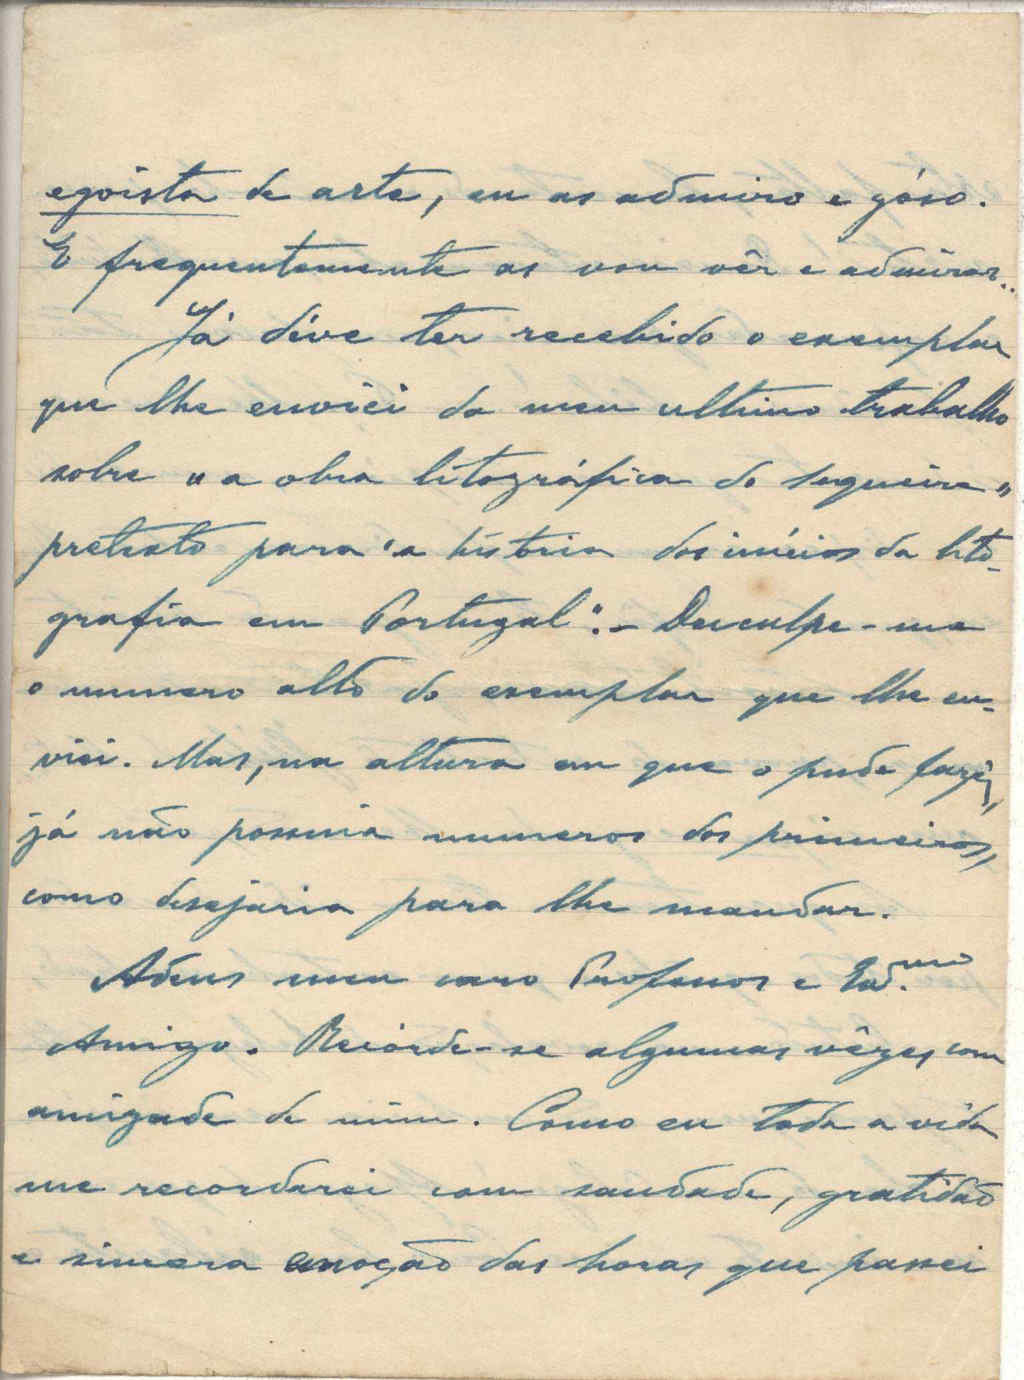 egoista de arte, eu as admiro e góso.
E frequentemente as vou vêr e admirar..
Já déve ter recebido o exemplar
que lhe enviei do meu ultimo trabalho
sobre "a obra litográfica do Sequeira"
pretexto para "a história dos inícios da lito-
grafia em Portugal". - Desculpe-me
o numero alto do exemplar que lhe en-
viei. Mas, na altura em que o pude fazêr,
já não possuia numeros dos primeiros,
como desejaria para lhe mandar.
Adeus meu caro Professor e Exd.mo
Amigo. Recórde-se algumas vêzes com
amizade de mim. Como eu toda a vida
me recordarei com saudade, gratidão
e sincera emoção das horas que passei